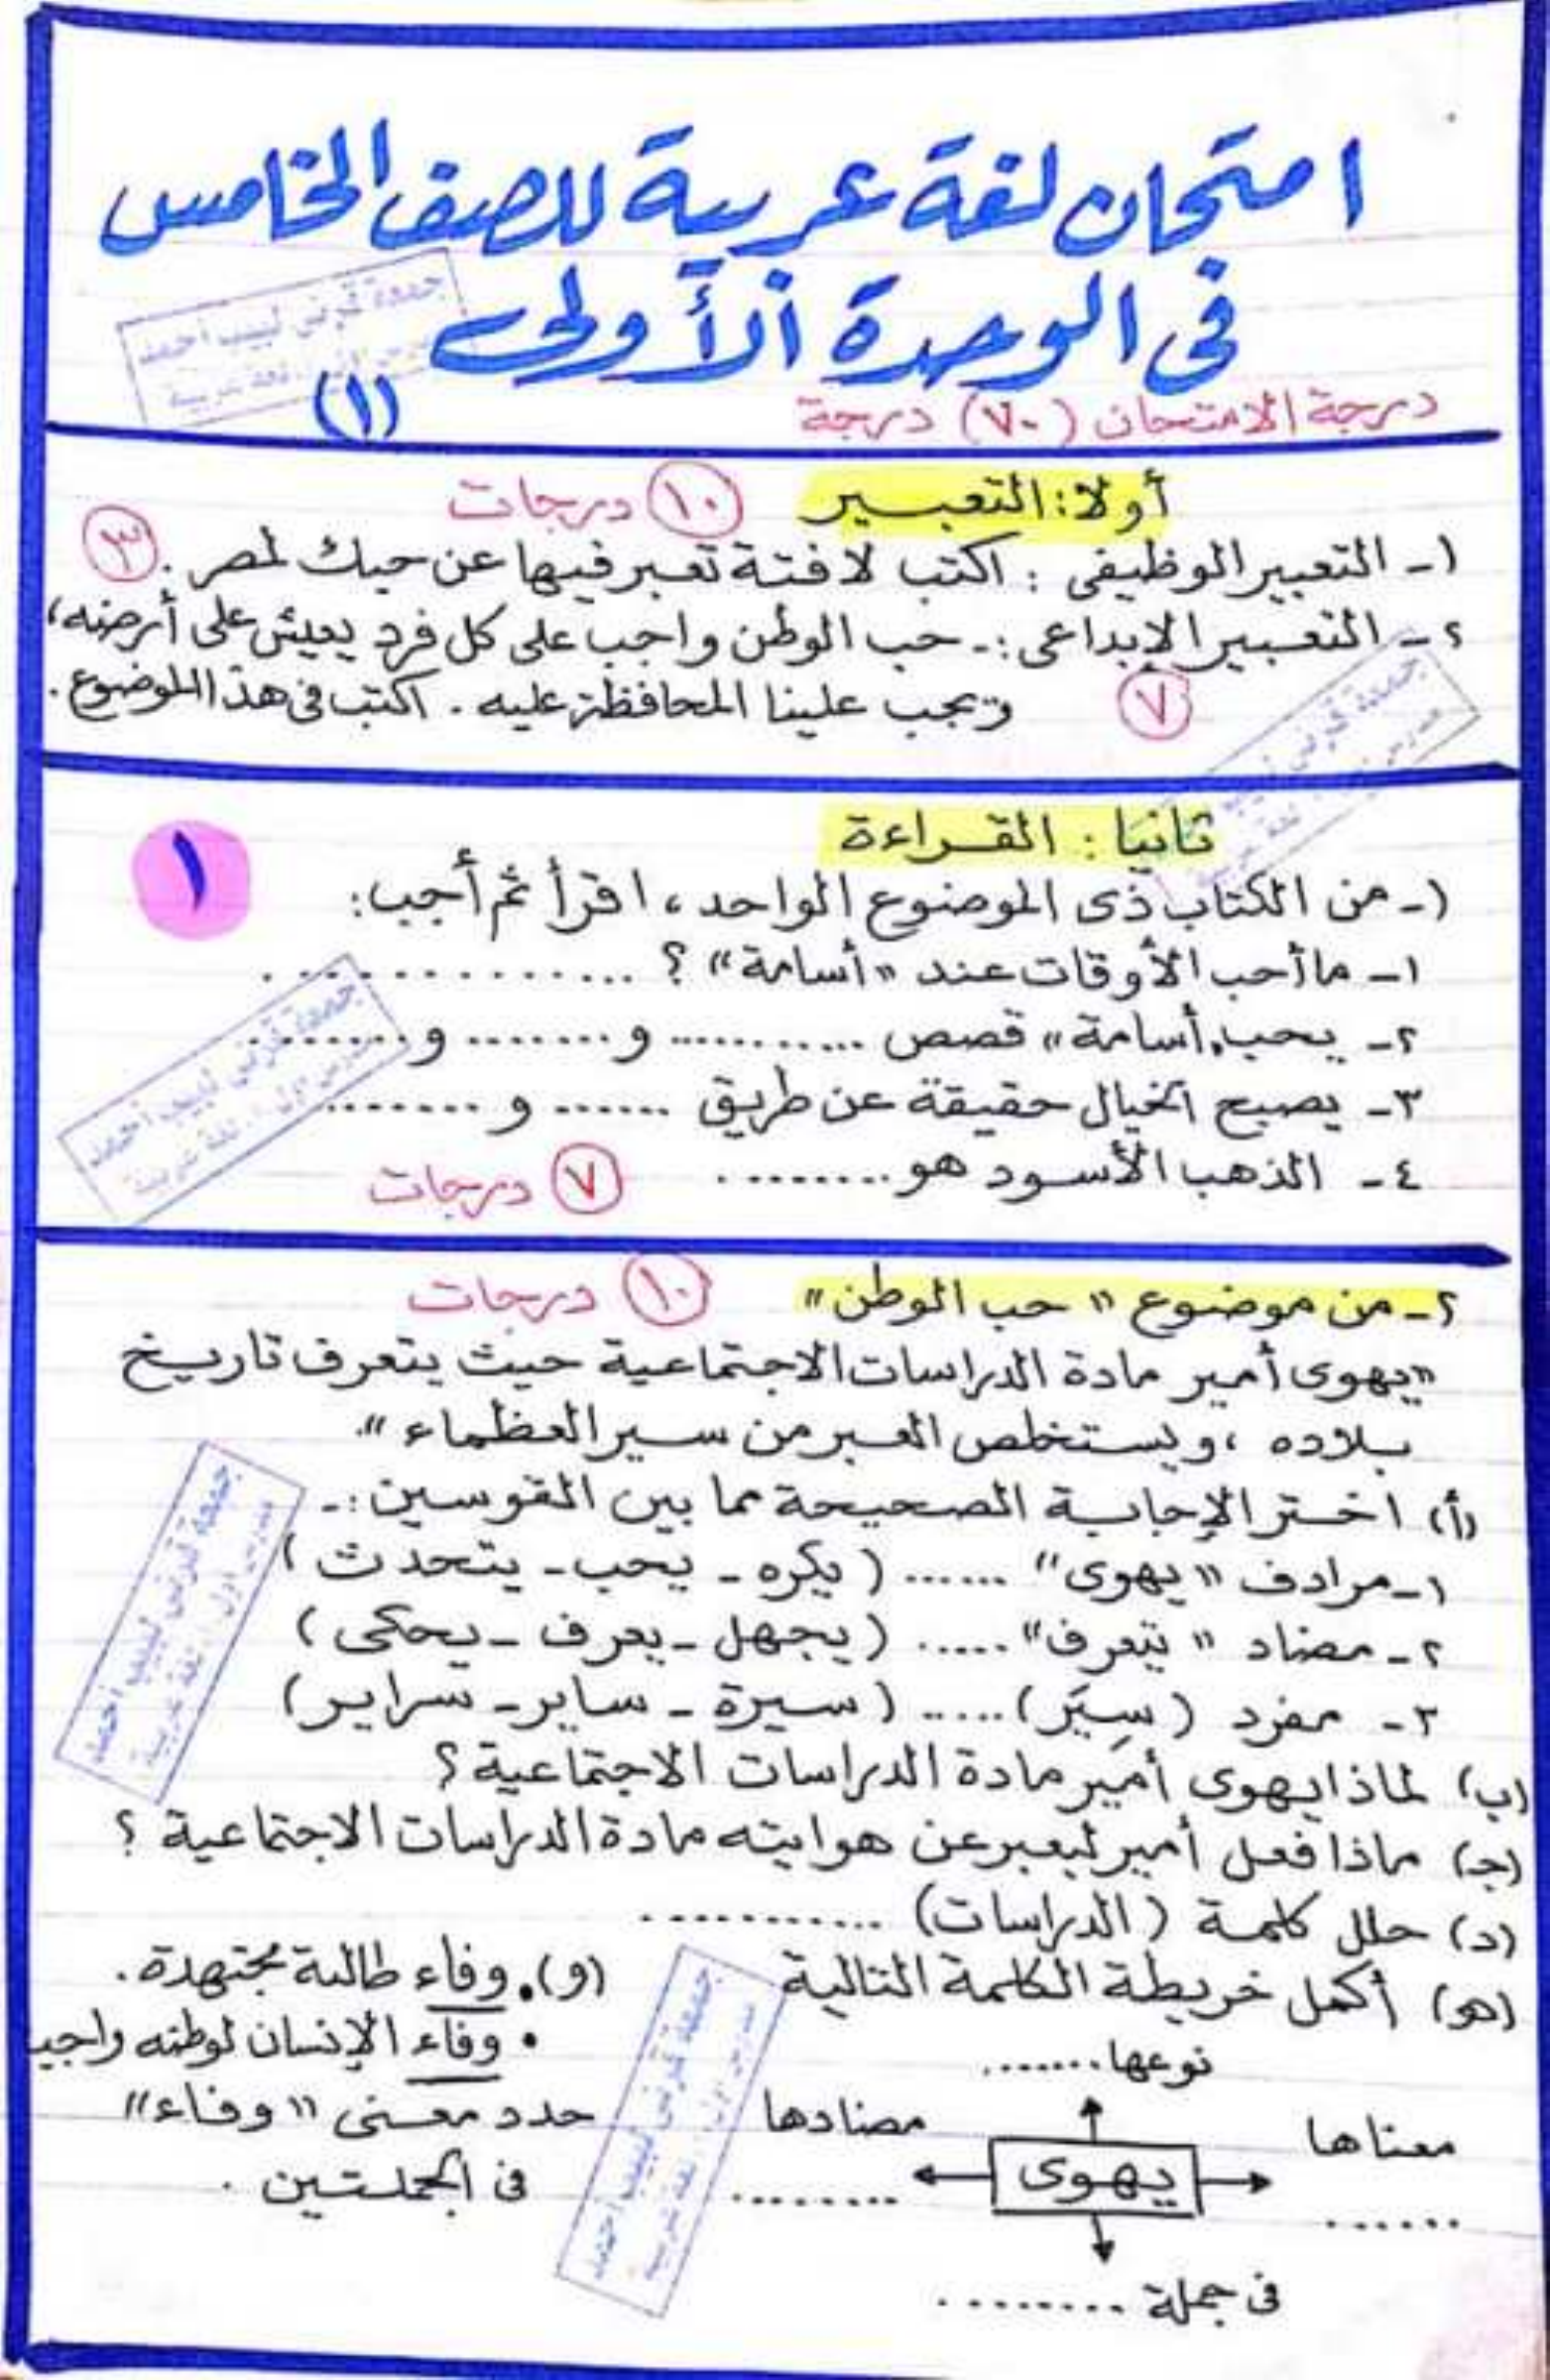 امتحان لغة عربية للصف الخامس
فى الوحدة الأولى
(١)
درجة الامتحان (٧٠) درجة
أولا: التعبير ١٠ درجات
١- التعبير الوظيفى : اكتب لافتة تعبر فيها عن حبك لمصر . ٣
٢- التعبير الإبداعى :- حب الوطن واجب على كل فرد يعيش على أرضه،
ويجب علينا المحافظة عليه . اكتب فى هذا الموضوع . ٧
ثانيا : القراءة
١
١- من الكتاب ذى الموضوع الواحد، اقرأ ثم أجب:
١- ما أحب الأوقات عند "أسامة" ؟ ..............
٢- يحب "أسامة" قصص ............ و........ و........
٣- يصبح الخيال حقيقة عن طريق ....... و ........
٤- الذهب الأسود هو .........
٧ درجات
٢- من موضوع "حب الوطن" ١٠ درجات
"يهوى أمير مادة الدراسات الاجتماعية حيث يتعرف تاريخ
بلاده ، ويستخلص العبر من سير العظماء".
(أ) اختر الإجابة الصحيحة مما بين القوسين :-
١- مرادف "يهوى" ...... (يكره - يحب - يتحدث)
٢- مضاد "يتعرف" ..... (يجهل - يعرف - يحكى)
٣- مفرد (سِيَر) ..... (سيرة - ساير - سراير)
(ب) لماذا يهوى أمير مادة الدراسات الاجتماعية ؟
(جـ) ماذا فعل أمير ليعبر عن هوايته مادة الدراسات الاجتماعية ؟
(د) حلل كلمة (الدراسات) ............
(هـ) أكمل خريطة الكلمة التالية
نوعها .......
معناها
......
مضادها
.........
يهوى
فى جملة .........
(و) • وفاء طالبة مجتهدة .
• وفاء الإنسان لوطنه واجب
حدد معنى "وفاء"
فى الجملتين .